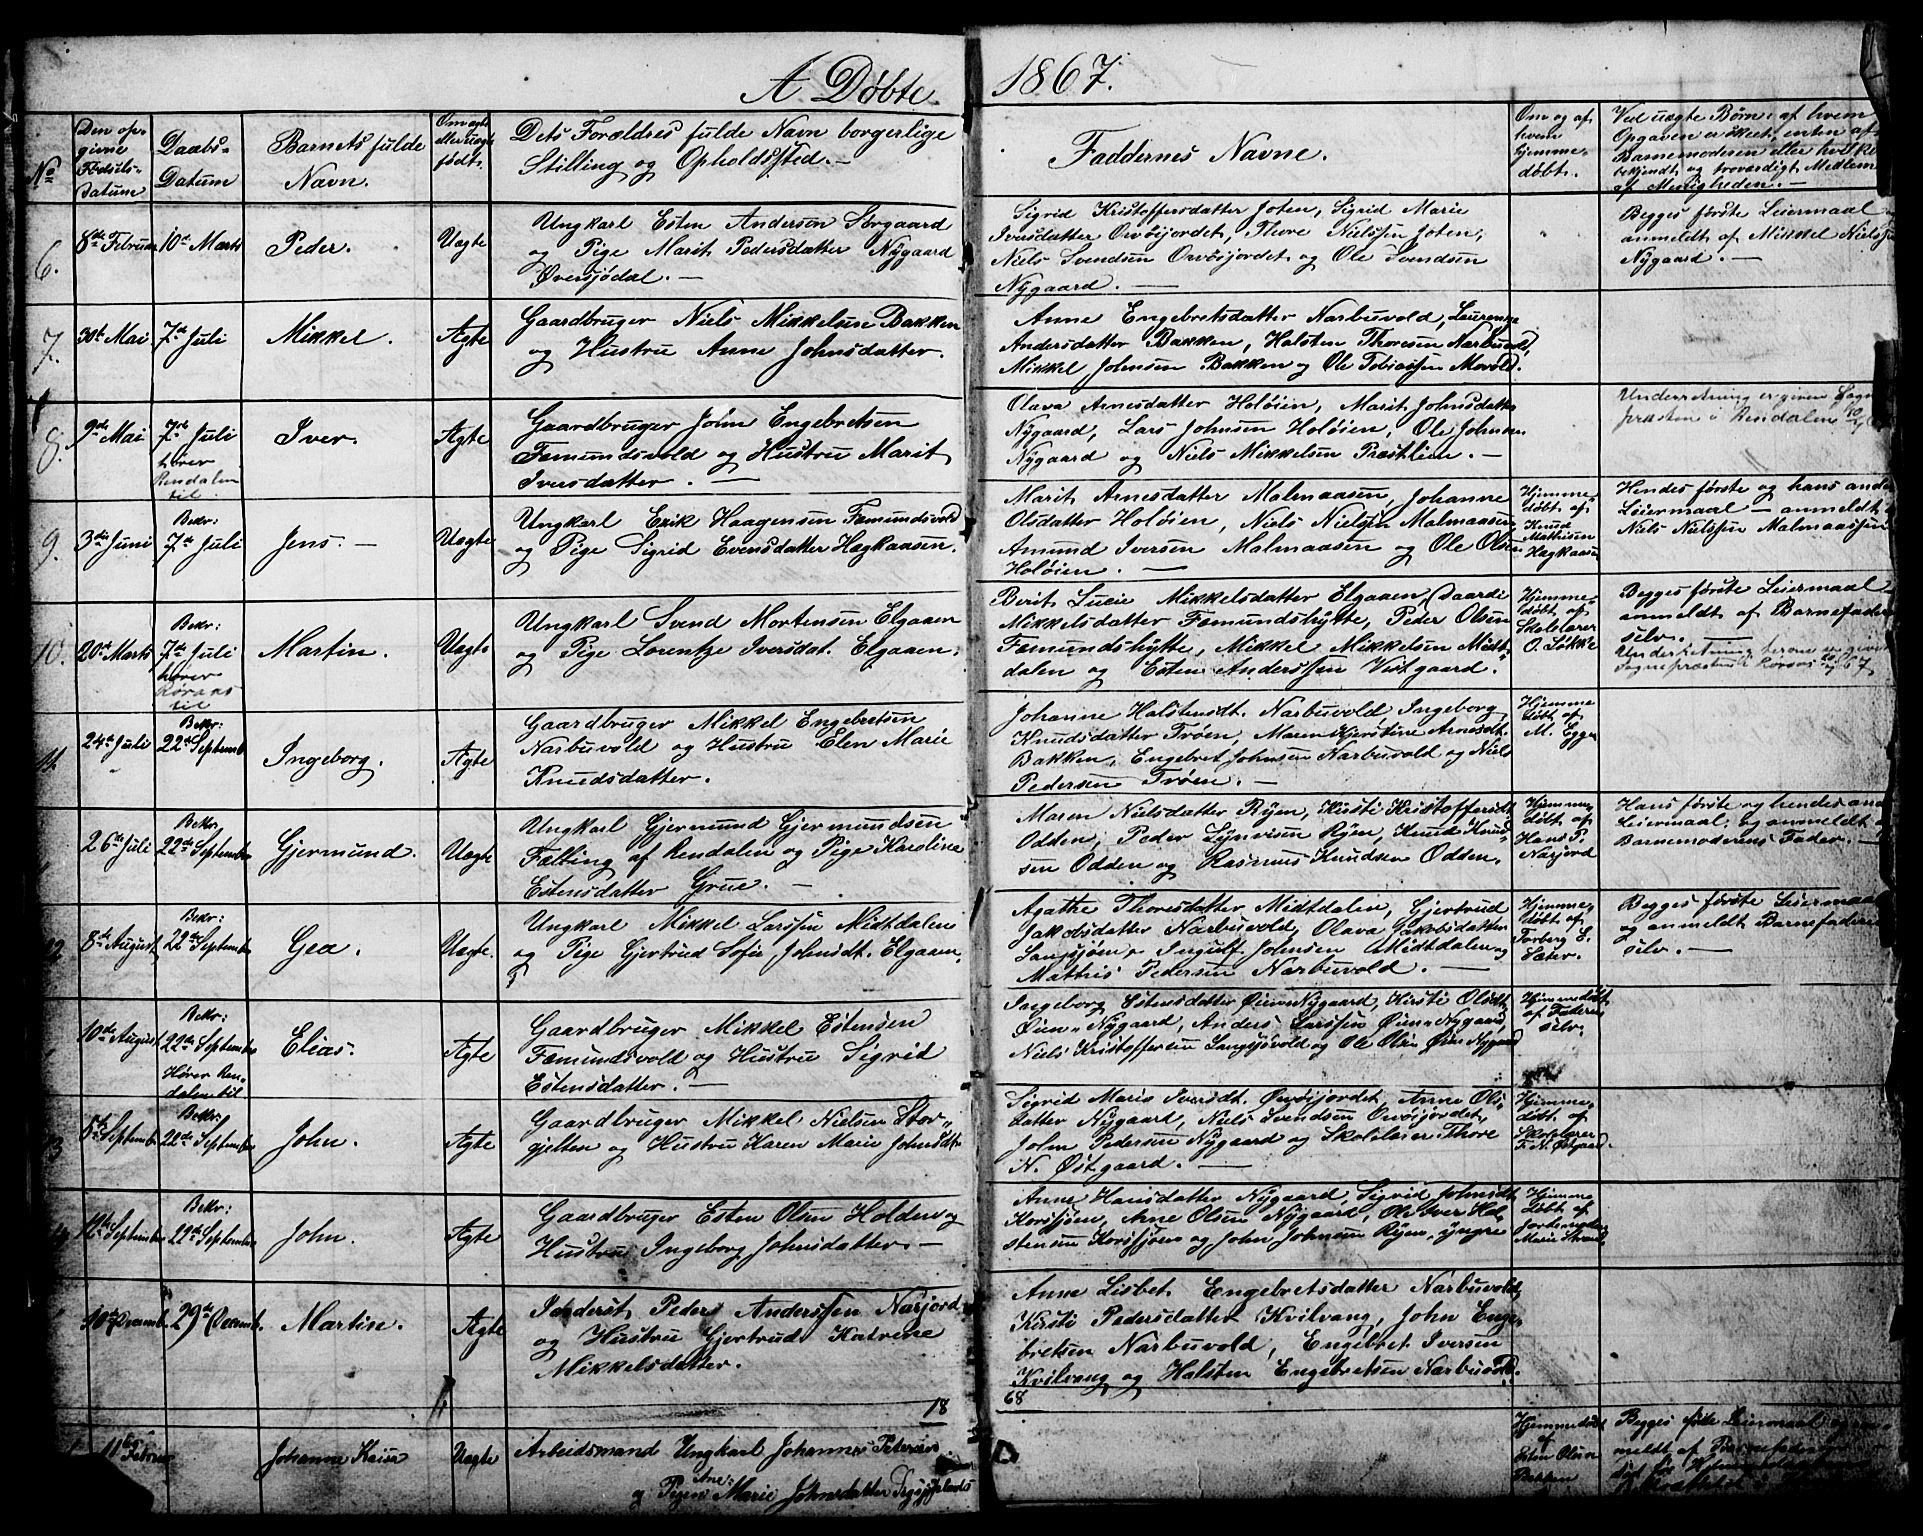 A Døbte 1867.
No
Den op-
givne
Fødsels-
datum
Daabs-
Datum
Barnets fulde
Navn.
Om ægte
eller uægte
født.
Dets Forældres fulde Navn borgerlige
Stilling og Opholdssted. -
Faddernes Navne.
Om og af
hvem
hjemme-
døbt.
Ved uægte Børn: af hvem
Opgaven er skeet, enten af
Barnemoderen eller hvilke
bekjendt og troværdigt Medlem
af Menigheden. -
6.
8de Februar
10de Marts
Peder.
Uægte
Ungkarl Esten Andersen Sørgaard
og Pige Marit Pedersdatter Nygaard
Øversjødal. -
Sigrid Kristoffersdatter Joten, Sigrid Marie
Iversdatter Orvosjordet, Thore Nielssen Joten,
Niels Svendsen Orvosjordet og Ole Svendsen
Nygaard. -
Begges første Leiermaal
anmeldt af Mikkel Nielssen
Nygaard. -
7.
30te Mai
7de Juli
Mikkel.
Ægte
Gaardbruger Niels Mikkelsen Bakken
og Hustru Anne Johnsdatter.
Anne Engebretsdatter Narbuvold, Laurense
Andersdatter Bakken, Halsten Thoresen Narbuvold,
Mikkel Johnsen Bakken og Ole Tobiassen Morvold.
8.
9de Mai
7de Juli
hører
Rendalen
til
Iver.
Ægte
Gaardbruger John Engebretsen
Femundsvold og Hustru Marit
Iversdatter. -
Olava Arnesdatter Holøien, Marit Johnsdatter
Nygaard, Lars Johnsen Holøien, Ole Johnsen
Nygaard og Niels Mikkelsen Præstlien. -
Underretning er given Sogne
præsten i Rendalen
9.
3die Juni
Bekr:
7de Juli
Jens. -
Uægte
Ungkarl Erik Haagensen Femundsvold
og Pige Sigrid Evensdatter Hagkaasen.
Marit Arnesdatter Malmaasen, Johanne
Olsdatter Holøien, Niels Nielsen Malmaasen,
Amund Iversen Malmaasen og Ole Olsen
Holøien. -
Hjemme-
døbt af
Knud
Mathisen
Hagkaasen
Hendes første og hans andet
Leiermaal - anmeldt
Niels Nielsen Malmaassen
10.
20de Marts
Bekr:
7de Juli
hører
Røraas
til
Martin.
Uægte
Ungkarl Svend Mortensen Elgaaen
og Pige Lorentze Iversdat. Elgaaen.
Berit Lucie Mikkelsdatter Elgaaen, Daardi
Mikkelsdatter Femundshytte, Peder Olsen
Femundshytte, Mikkel Mikkelsen Midt-
dalen og Esten Anderssen Vestgaard.
Hjemme-
døbt af
Skolelærer
O. Løkke
Begges første Leiermaal
anmeldt af Barnefaderen
selv. -
Underretning herom er givet
Sognepræsten i Røraas 10/7 67
11.
24de Juli
Bekr:
22de Septemb
Ingeborg.
Ægte
Gaardbruger Mikkel Engebretsen
Narbuvold og Hustru Elen Marie
Knudsdatter.
Johanne Halstensdt. Narbuvold, Ingeborg
Knudsdatter Trøen, Maren Kjerstine Arnesdt.
Bakken, Engebret Johnsen Narbuvold og Niels
Pedersen Trøen. -
Hjemme
døbt af
M. Eggen
26de Juli
Bekr.
22de Septembr
Gjermund.
Uægte
Ungkarl Gjermund Gjermundsen
Fælting af Rendalen og Pige Karoline
Estensdatter Grue. -
Maren Nielsdatter Ryen, Kirsti Kristoffersdt.
Odden, Peder Synvisen Ryen, Knud Knud-
sen Odden og Rasmus Knudsen Odden.
Hjemme-
døbt af
Hans P.
Narjord
Hans første og hendes andet
Leiermaal, og anmeldt af
Barnemoderens Fader. -
12
8de August
Bekr:
22de Septembr
Gea.
Uægte.
Ungkarl Mikkel Larssen Midtdalen
og Pige Gjertrud Sofie Johnsdt. Elgaaen.
Agathe Thoresdatter Midtdalen, Gjertrud
Jakobsdatter Narbuvold, Olava Jakobsdatter
Langsjøen, Ingulf Johnsen Midtdalen og
Mathis Pedersen Narbuvold. -
Hjemme-
døbt af
Torberg E.
Sæter.
Begges første Leiermaal
og anmeldt Barnefaderen
selv. -
10de August
Bekr:
22de Septembr
Hører Ren-
dalen til
Elias.
Ægte
Gaardbruger Mikkel Estensen
Femundsvold og Hustru Sigrid
Estensdatter. -
Ingeborg Estensdatter Øien Nygaard, Kirsti Olsdt.
Øien Nygaard, Anders Larssen Øien Nygaard,
Niels Kristoffersen Langsjøvold og Ole Olsen Øien Nygaard
Hjemmedøbt
af Faderen
selv.
13
5te Septembr
Bekr:
22de Septembr
John.
Ægte
Gaardbruger Mikkel Nielsen Stor-
gjelten og Hustru Karen Marie Johnsdt.
Sigrid Marie Iversdt. Orvosjordet, Anne Ols-
datter Nygaard, Niels Svendsen Orvosjordet,
John Pedersen Nygaard og Skolelærer Thore
N. Østgaard. -
Hjemme-
døbt af
Skolelærer
T. N. Østgaard.
12te Septembr
Bekr:
22de Septembr
John.
Ægte
Gaardbruger Esten Olsen Holden og
Hustru Ingeborg Johnsdatter. -
Anne Hansdatter Nygaard, Sigrid Johnsdt.
Korssjøen, Arne Olsen Nygaard, Ole Iver Hal-
stensen Korssjøen og John Johnsen Ryen, yngre
Hjemme
døbt af
Jordemoder
Marie Strand.
10de Decemb.
29de Decemb.
Martin.
Ægte
Inderst Peder Anderssen Narjord
og Hustru Gjertrud Katrine
Mikkelsdatter.
Anne Lisbet Engebretsdatter Narbuvold,
Kirsti Pedersdatter Kvilvang, John Enge-
bretsen Narbuvold, Engebret Iversen
Kvilvang og Halsten Engebretsen Narbuvold.
18 68
11te Februar
Johanne Kaisa
Uægte
Arbeidsmand Ungkarl Johannes Petersen
og Pigen Ane Marie Johnsdatter
Hjemmedøbt
af
Esten Olsen
Bakken
Begges første Leiermaal
meldt af Barnefaderen